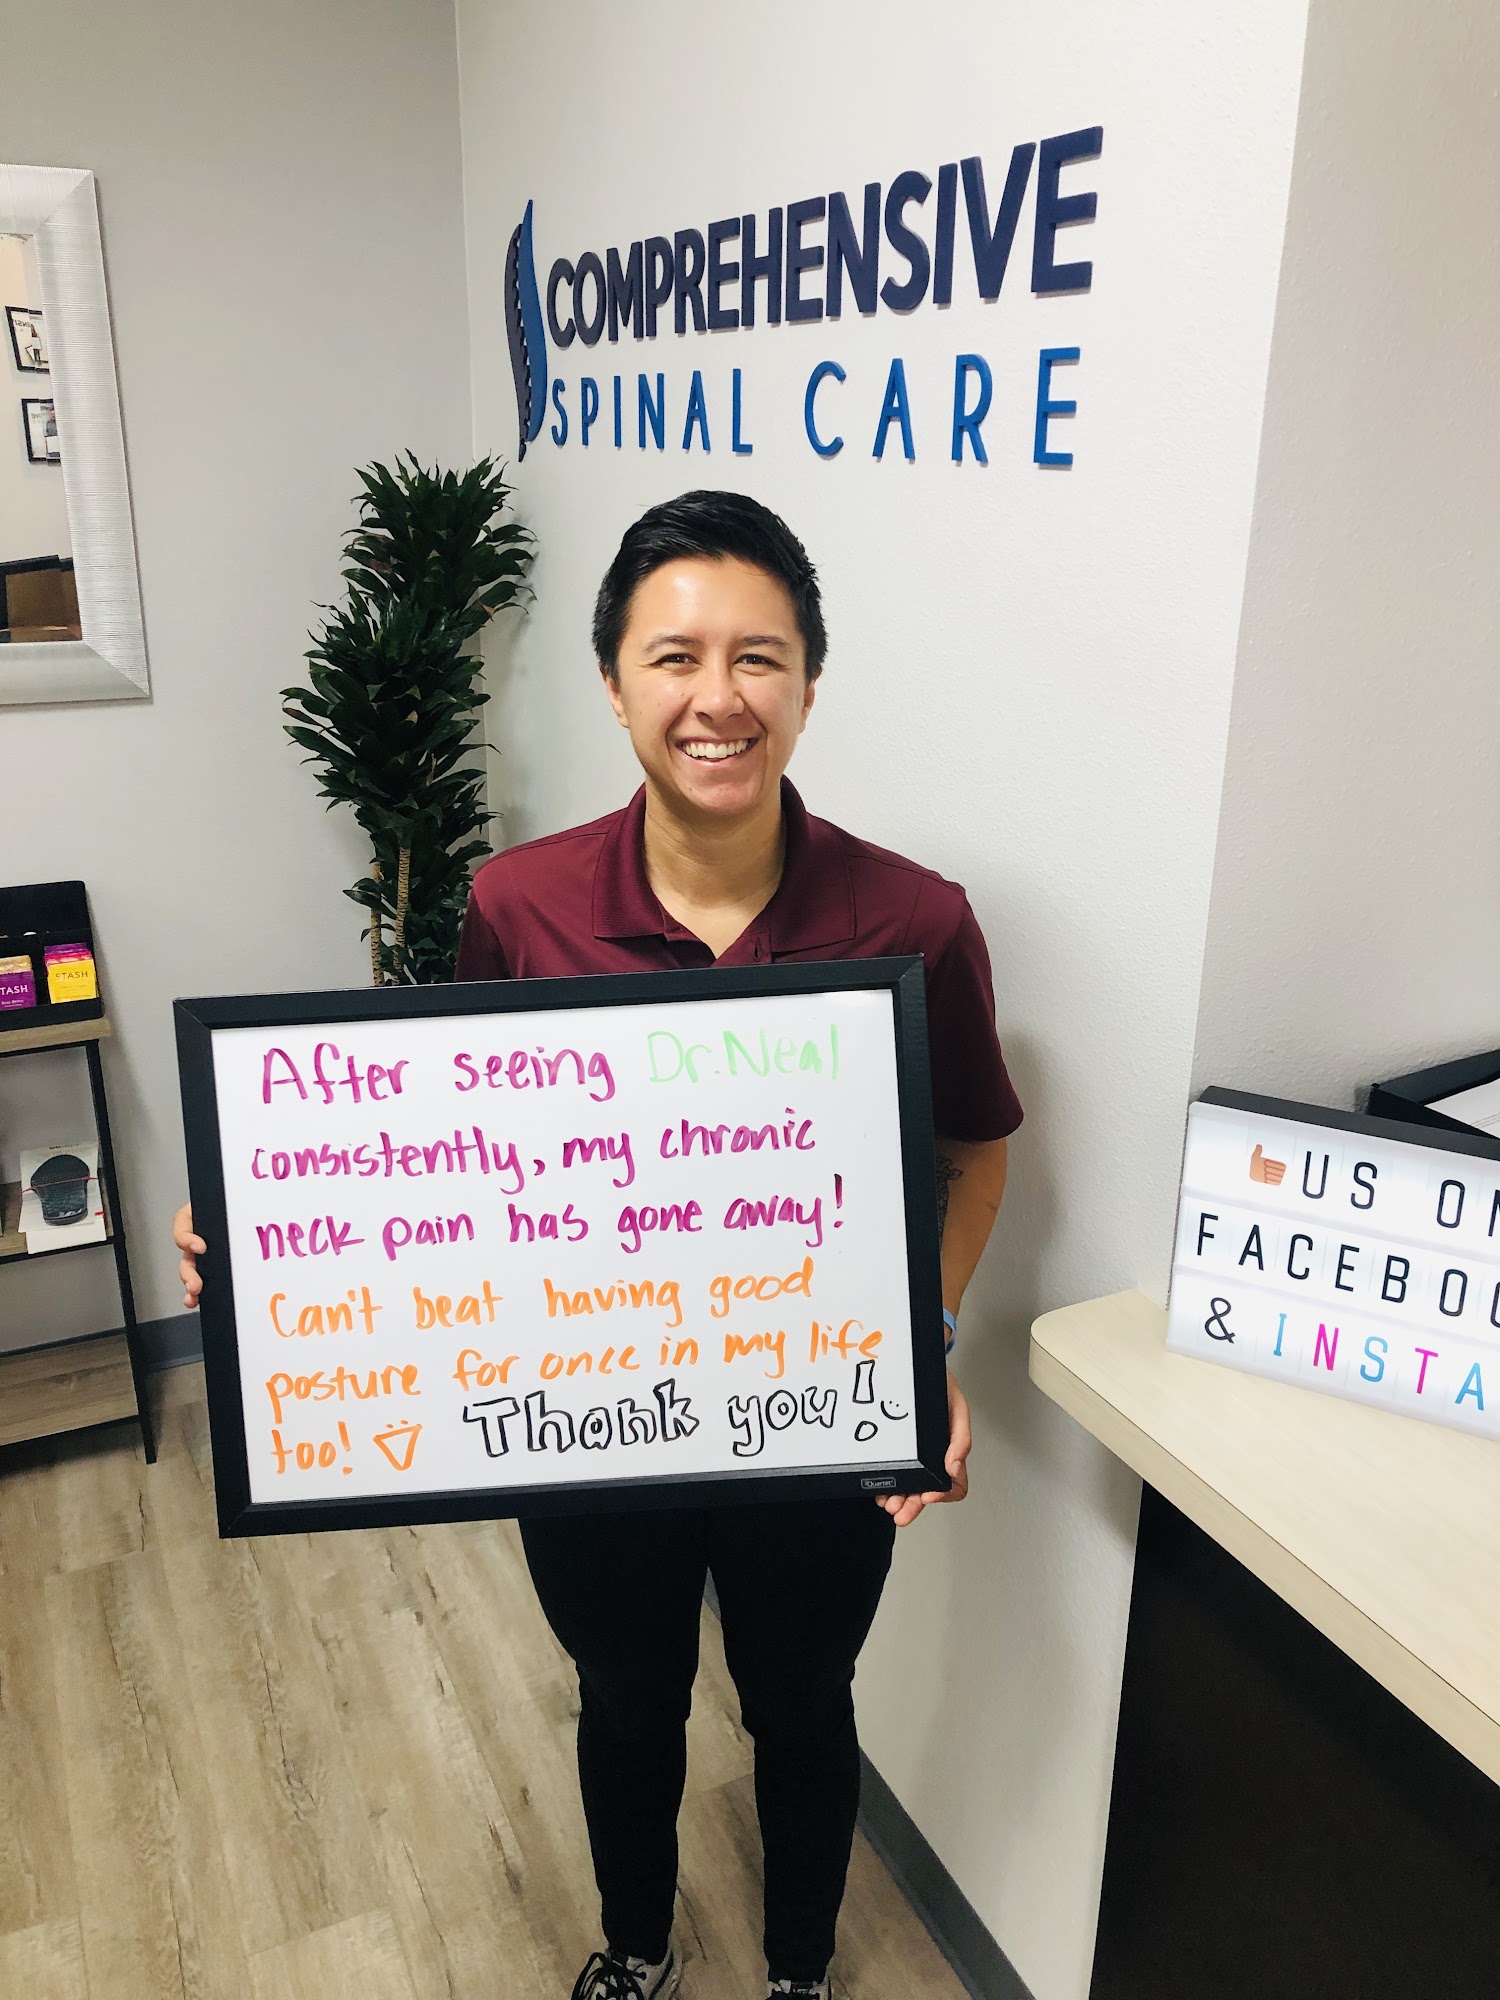 COMPREHENSIVE
SPINAL CARE
After seeing Dr. Neal
consistently, my chronic
neck pain has gone away!
Can't beat having good
posture for once in my life
too!
Thank you!
Quartet
STASH
TASH
US ON
FACEBOO
& INSTA